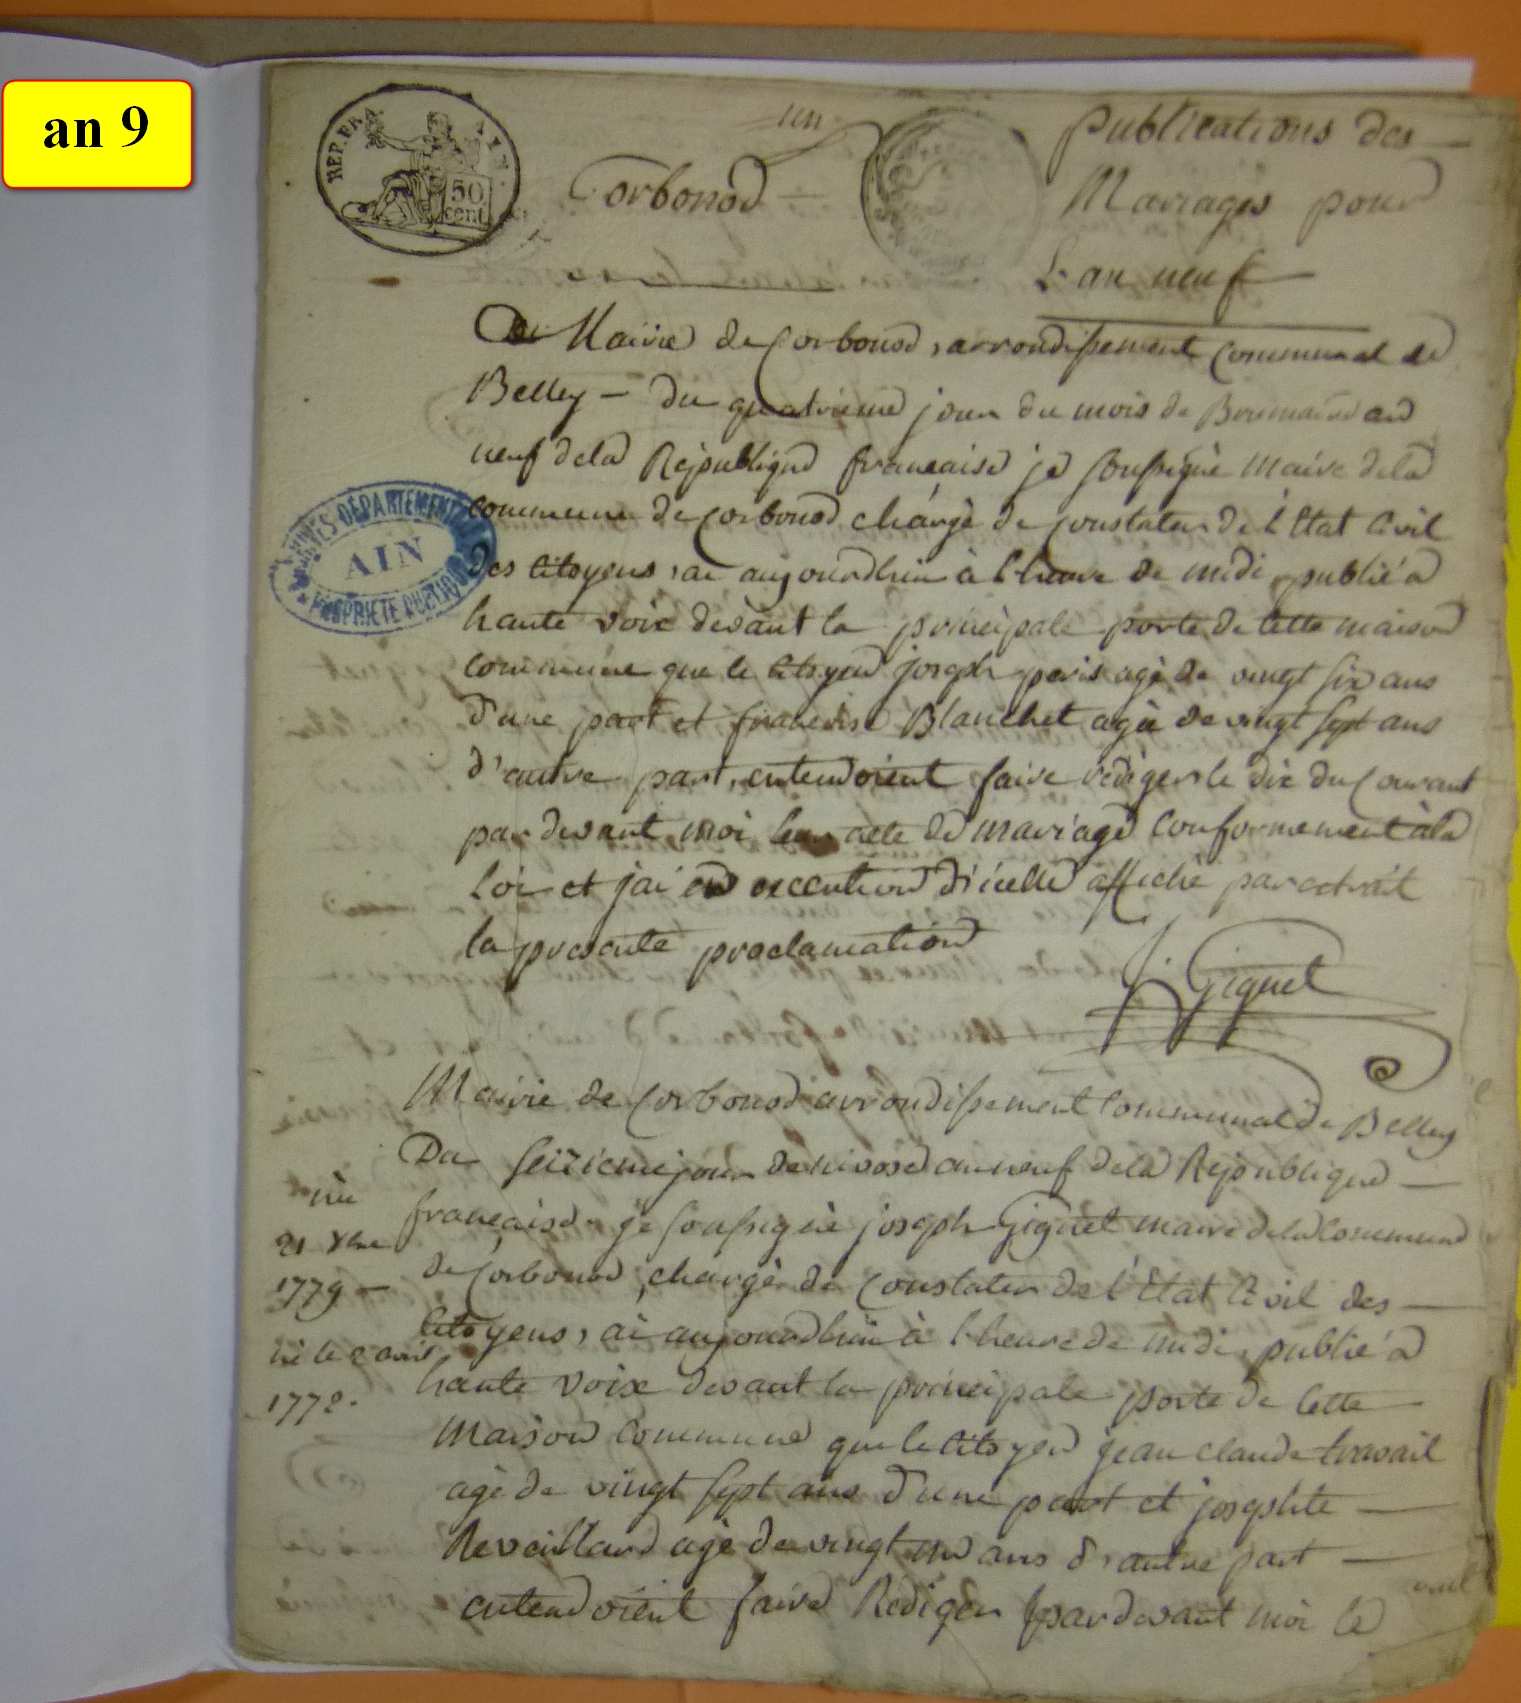 an 9
REP. FRA.
50
cent.
un
Corbonod
Publications des
Mariages pour
L'an neuf
De Mairie de Corbonod, arrondissement communal de
Belley - du quatrieme jour du mois de Brumaire an
neuf de la République francaise je soussigné maire de la
commune de Corbonod chargé de constater de l'Etat Civil
des citoyens, ai aujourdhui à l'heure de midi publié a
haute voix devant la principale porte de cette maison
commune que le citoyen joseph peris agé de vingt six ans
d'une part et francoise Blanchet agée de vingt sept ans
d'autre part, entendoient faire rédiger le dix du Courant
par devant moi leur acte de mariage conformement à la
loi et j'ai en execution d'icelle affiché par extrait
la presente proclamation
J. Giguet
ARCHIVES DÉPARTEMENTALES
AIN
PROPRIÉTÉ PUBLIQUE
Mairie de Corbonod arrondissement communal de Belley
Du seizieme jour de nivose an neuf de la République
francaise je soussigné joseph Giguet maire de la commune
de Corbonod, chargé de constater de l'Etat Civil des
citoyens, ai aujourdhui à l'heure de midi, publié a
haute voix devant la principale porte de cette
maison commune que le citoyen jean claude travail
agé de vingt sept ans d'une part et josephte
Reveillard agé de vingt un ans d'autre part
entendoient faire Rédiger par devant moi le
née
21 Xbre
1779
né le 2 avril
1772.